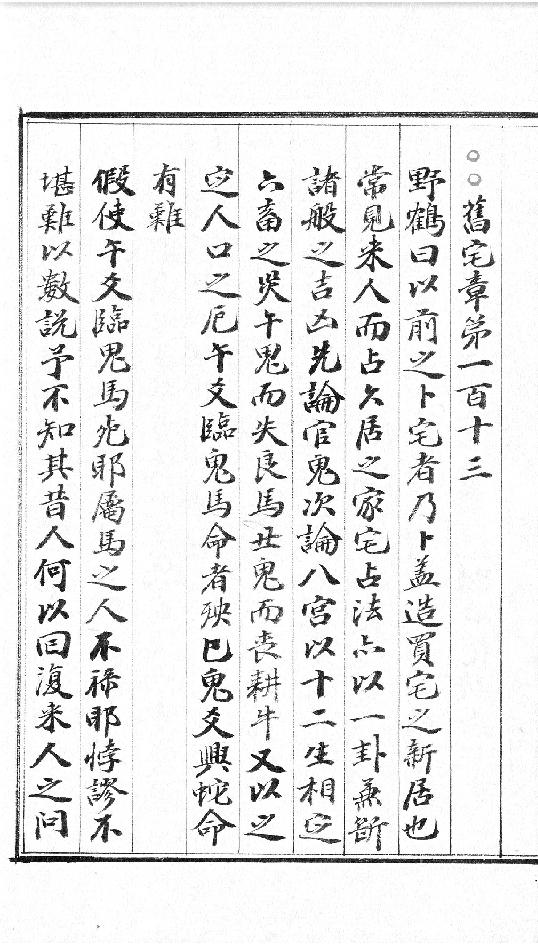 ○○舊宅章第一百十三
野鶴曰以前之卜宅者乃卜蓋造買宅之新居也
常見来人而占久居之家宅占法亦以一卦兼斷
諸般之吉凶先論官鬼次論八宮以十二生相定
六畜之災午鬼而失良馬丑鬼而丧耕牛又以之
定人口之厄午爻臨鬼馬命者殃巳鬼爻興蛇命
有難
假使午爻臨鬼馬死耶屬馬之人不祿耶悖謬不
堪難以數說予不知其昔人何以回復来人之问